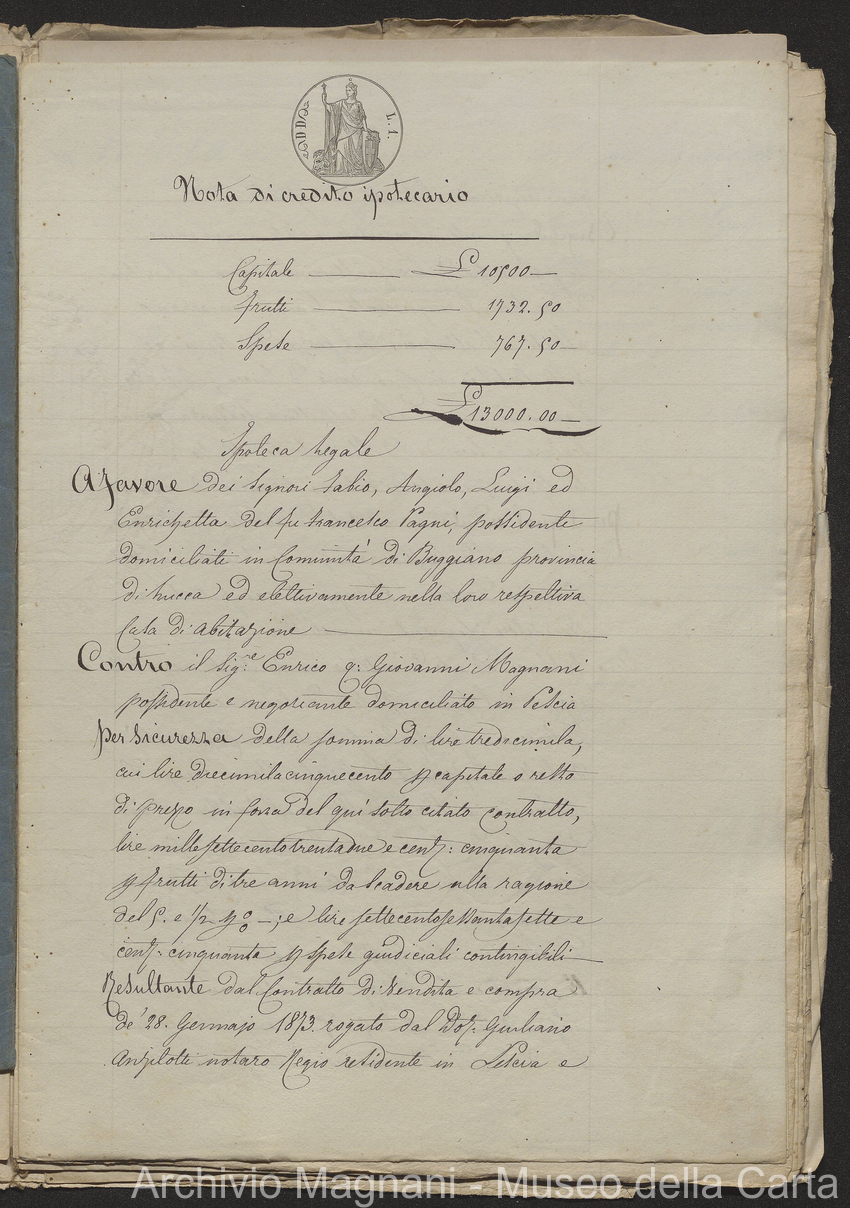 L. 1.
Nota di credito ipotecario
Capitale — £ 10500 —
Frutti — 1732. 50
Spese — 767. 50
£ 13000. 00 —
Ipoteca Legale
A favore dei Signori Fabio, Angiolo, Luigi ed
Enrichetta del fu Francesco Pagni, possidente
domiciliati in Comunità di Buggiano provincia
di Lucca ed elettivamente nella loro respettiva
Casa di abitazione —
Contro il Sig:re Enrico q: Giovanni Magnani
possidente e negoziante domiciliato in Pescia
Per Sicurezza della somma di lire tredicimila,
cui lire diecimilacinquecento p capitale o resto
di prezzo in forza del qui sotto citato contratto,
lire millesettecentotrentadue e cent: cinquanta
p frutti di tre anni da scadere alla ragione
del 5. e 1/2 p % —; e lire settecentosessantasette e
cent: cinquanta p spese giudiciali contingibili —
Resultante dal Contratto di Vendita e compra
de' 28. Gennajo 1873. rogato dal Dot: Giuliano
Anzilotti notaro Regio residente in Pescia e
Archivio Magnani - Museo della Carta